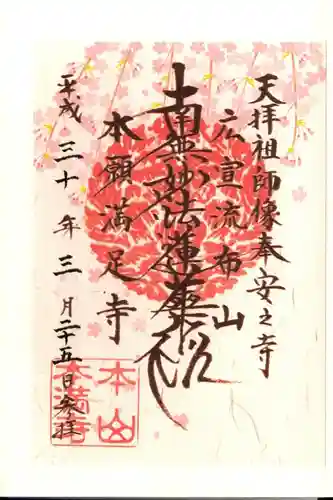 天拝祖師像奉安之寺
広宣流布山
南無妙法蓮華経
本願満足寺
平成三十年三月二十五日参拝
本山
本満寺